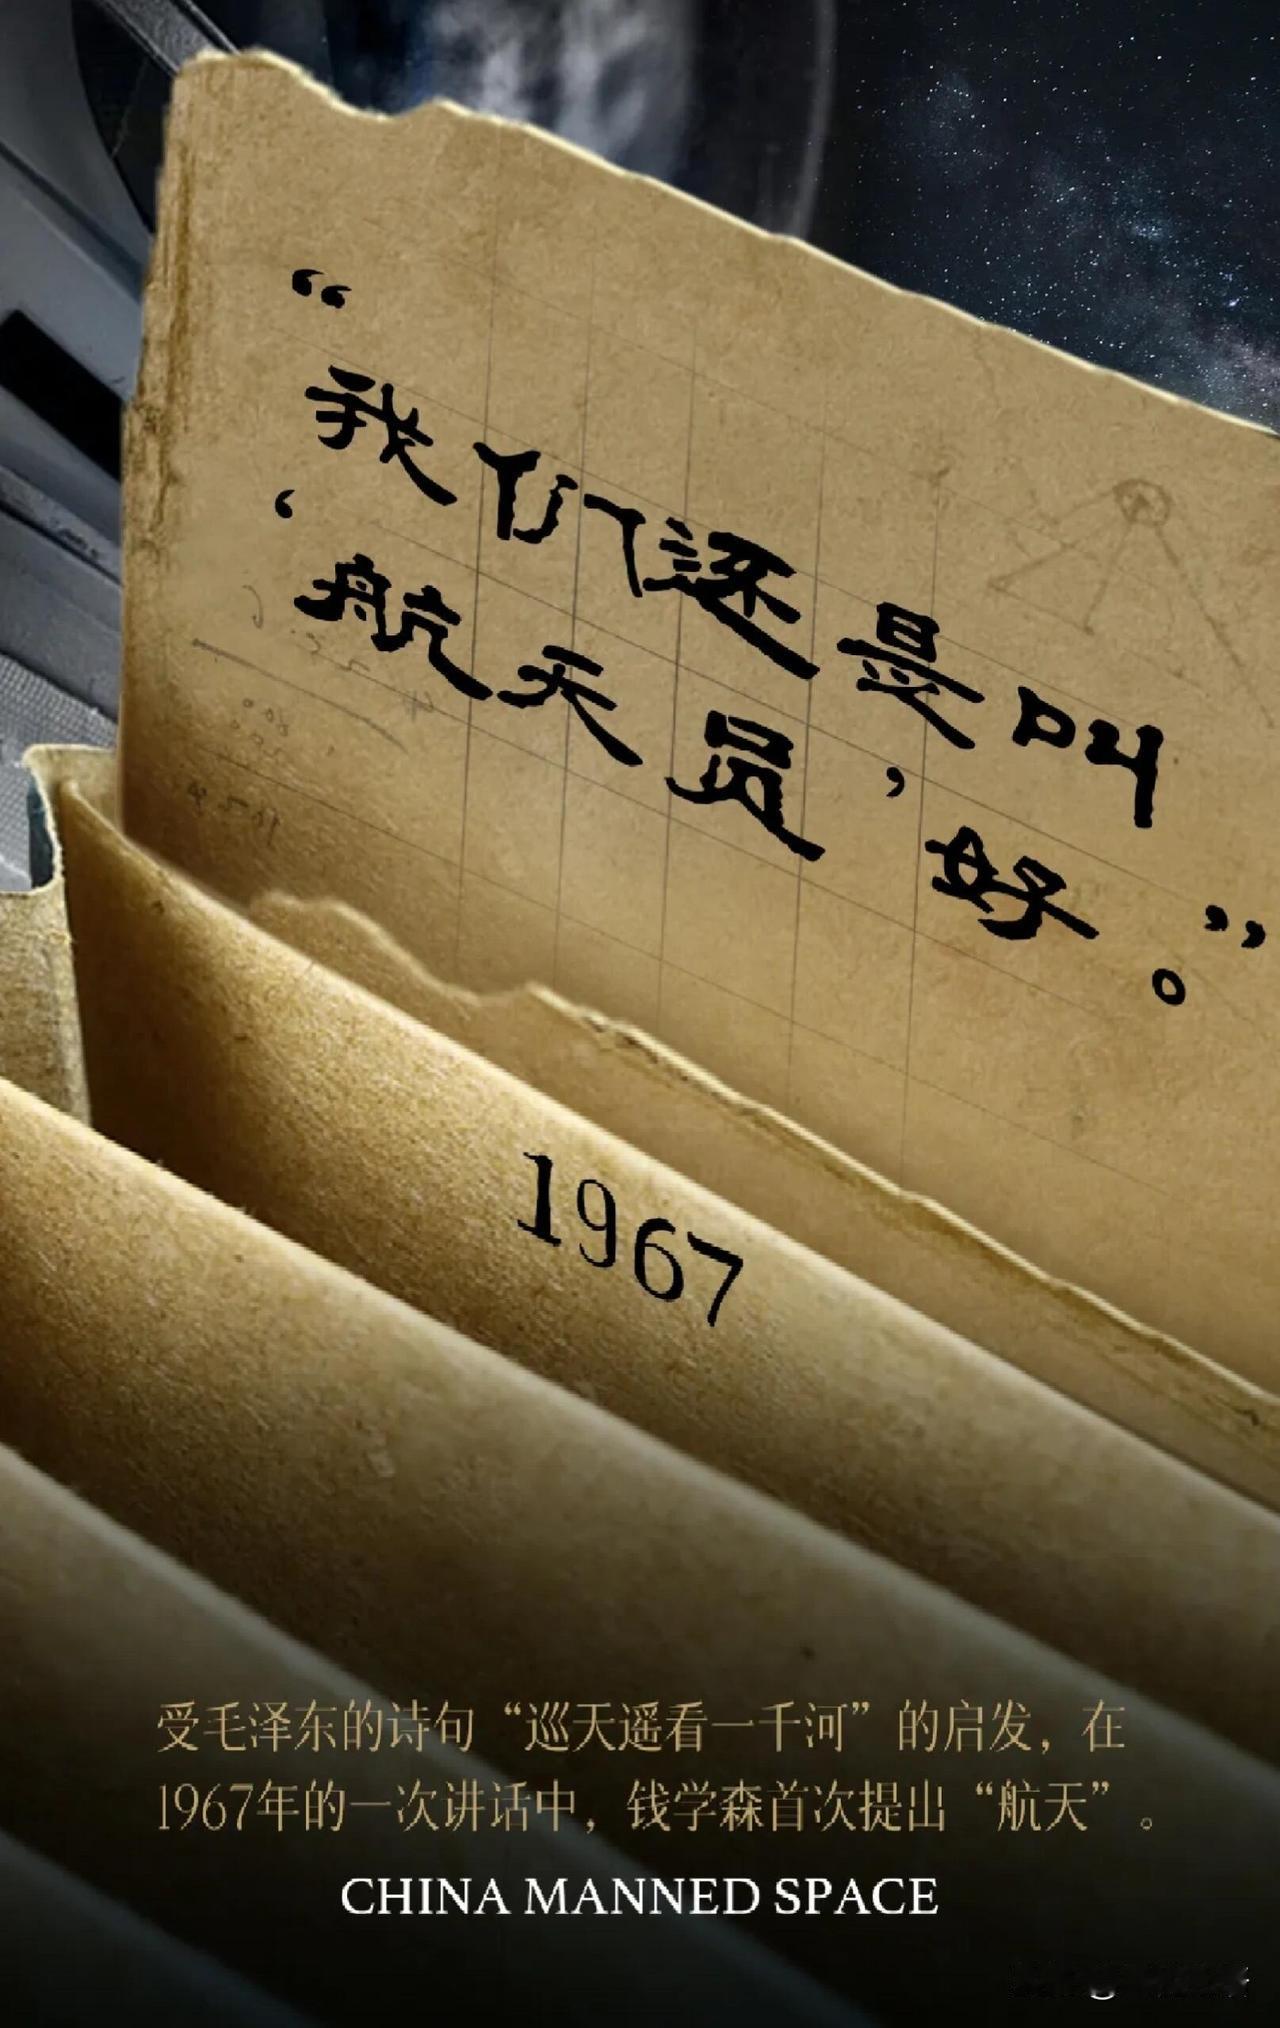 “
我们还是叫
‘航天员，好。”
1967
受毛泽东的诗句“巡天遥看一千河”的启发，在
1967年的一次讲话中，钱学森首次提出“航天”。
CHINA MANNED SPACE